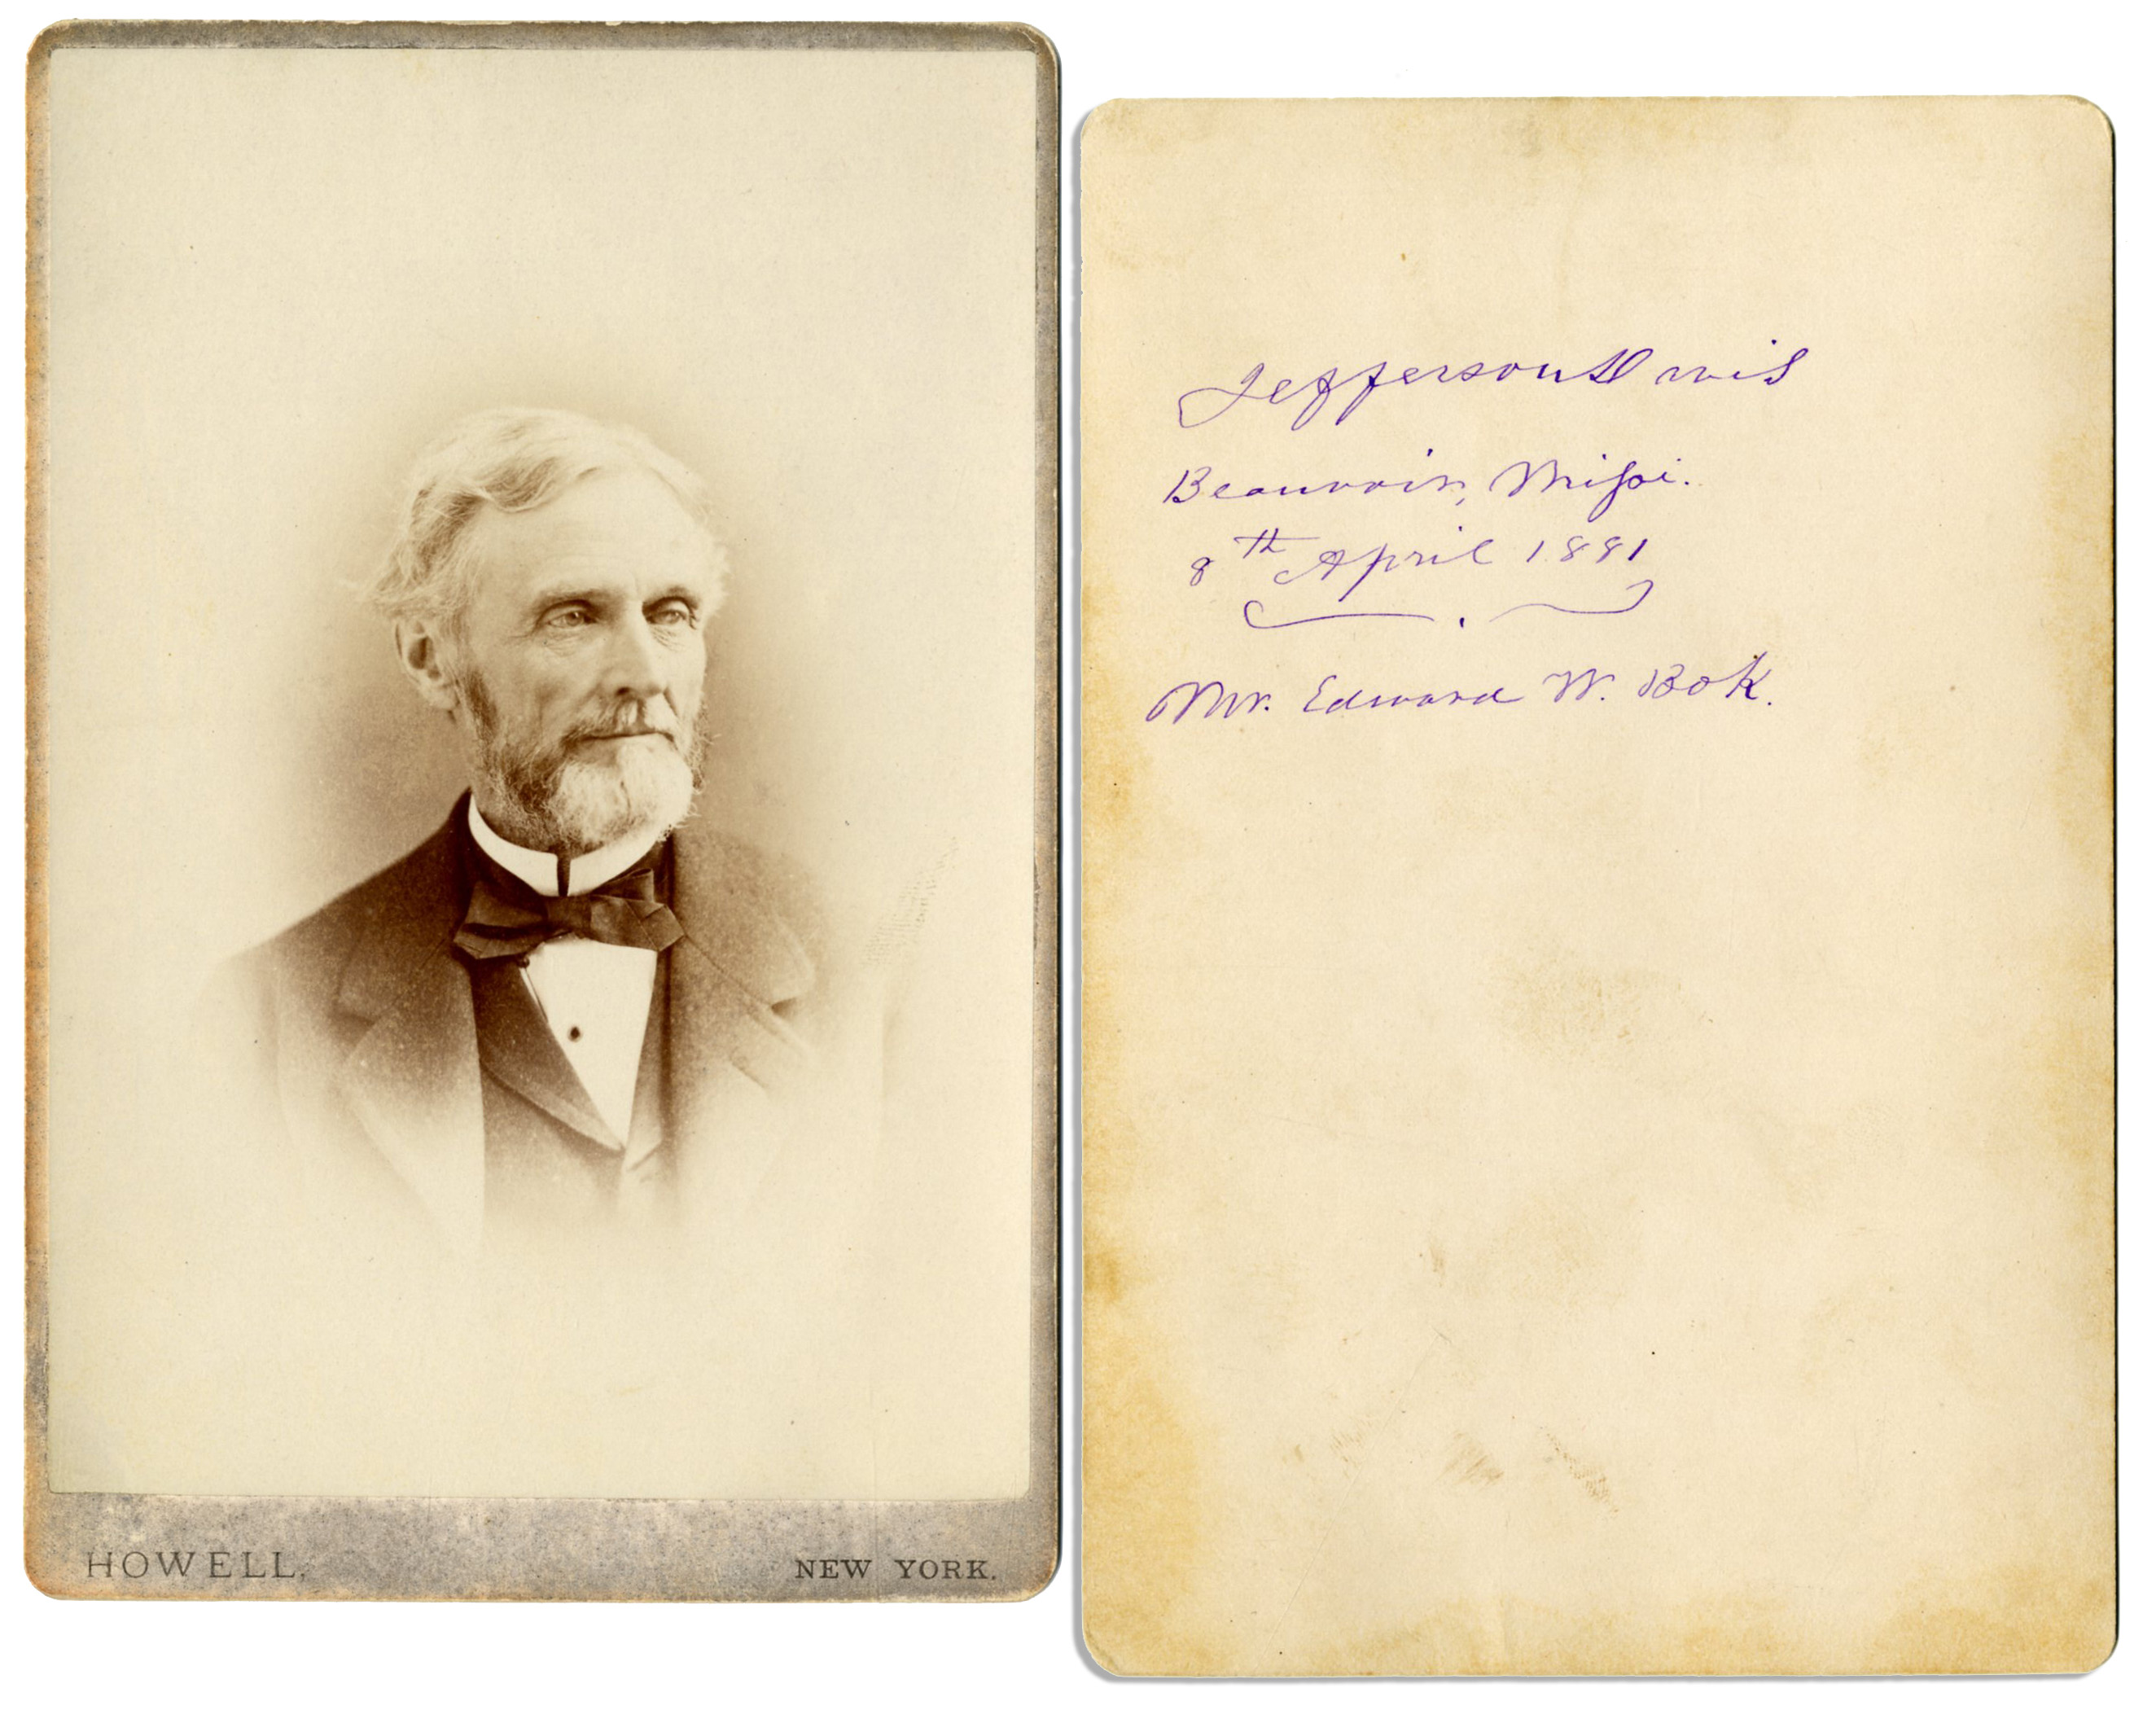 HOWELL,
NEW YORK.
Jefferson Davis
Beauvoir, Missi.
8th April 1881
Mr. Edward W. Bok.